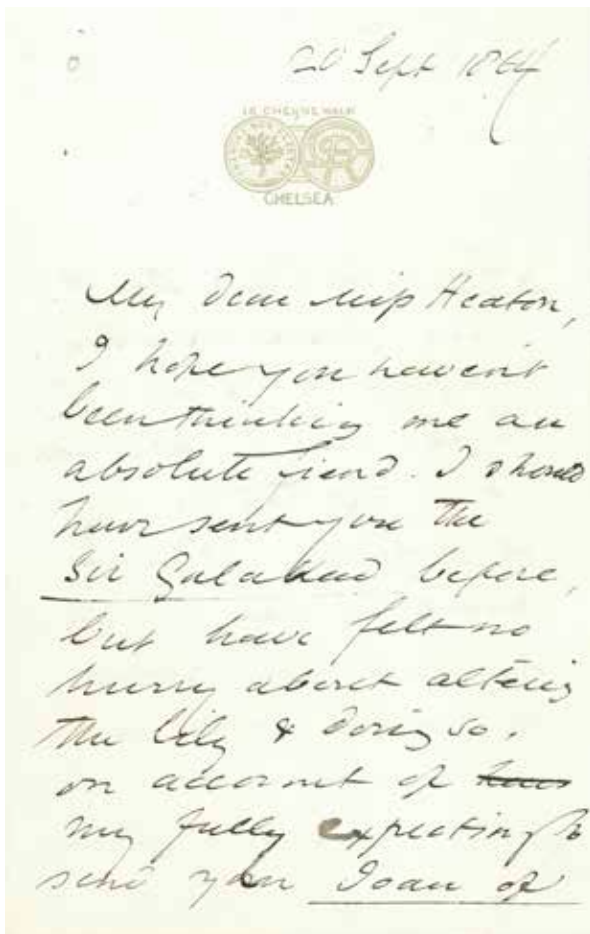 20 Sept 1864
16 CHEYNE WALK
CHELSEA
My dear Miss Heaton,
I hope you haven't
been thinking me an
absolute fiend. I should
have sent you the
Sir Galahad before,
but have felt no
hurry about altering
the lily & doing so,
on account of
my fully expecting to
send you Joan of